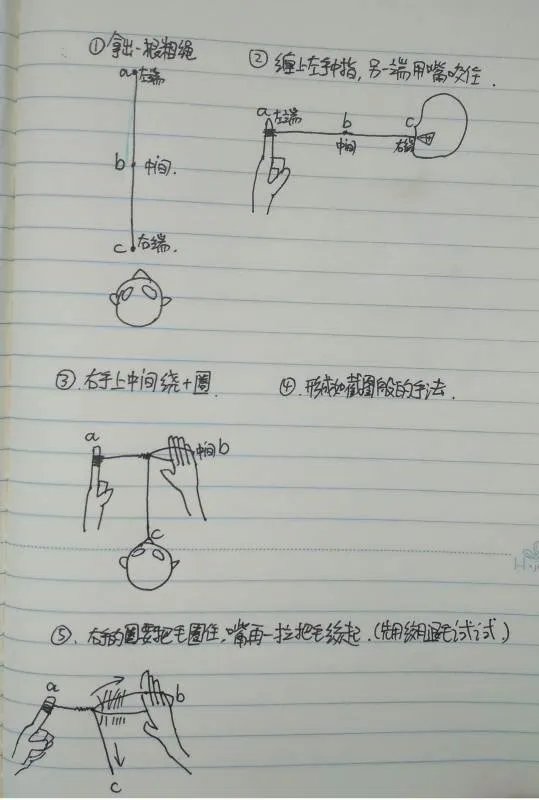 ① 拿出一根粗绳
a 左端
b 中间.
c 右端.
② 缠上左手中指,另一端用嘴咬住.
a 左端
b
中间
c
右端
③. 右手上中间绕十圈.
④. 形成如截图的手法.
a
中间 b
c
⑤. 右手的圈要把毛圈住,嘴再一拉把毛绞起.(先用绞腿毛试试)
a
b
c